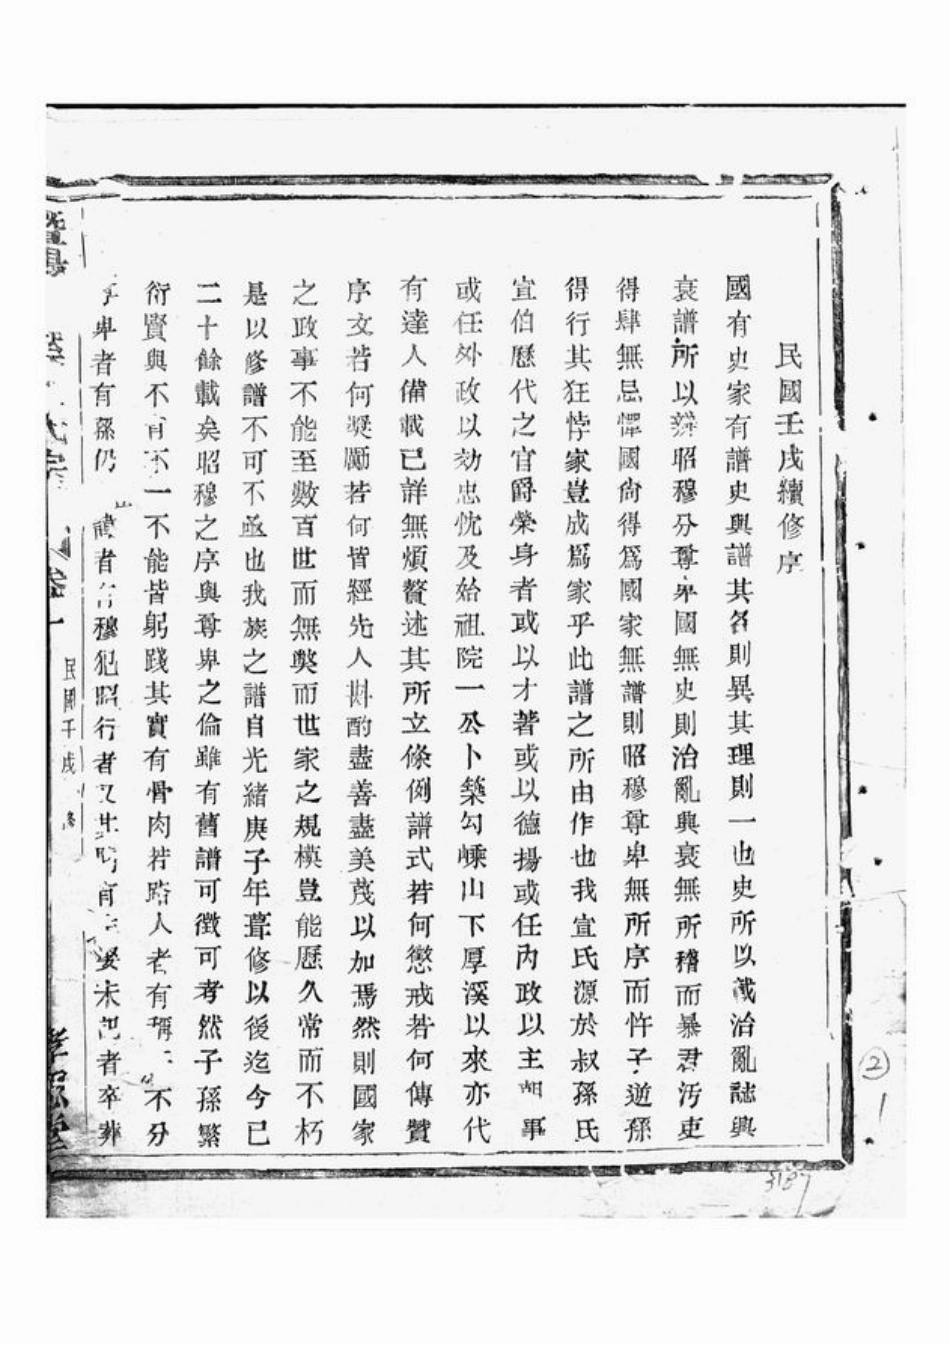 民國壬戌續修序
國有史家有譜史與譜其名則異其理則一也史所以載治亂誌興
衰譜所以辨昭穆分尊卑國無史則治亂興衰無所稽而暴君汚吏
得肆無忌憚國尙得爲國家無譜則昭穆尊卑無所序而忤子逆孫
得行其狂悖家豈成爲家乎此譜之所由作也我宣氏源於叔孫氏
宣伯歷代之官爵榮身者或以才著或以德揚或任內政以主 事
或任外政以効忠忱及始祖院一公卜築勾嵊山下厚溪以來亦代
有達人備載已詳無煩贅述其所立條例譜式若何懲戒若何傳贊
序文若何奬勵若何皆經先人斟酌盡善盡美茂以加焉然則國家
之政事不能至數百世而無獘而世家之規模豈能歷久常而不朽
是以修譜不可不亟也我族之譜自光緒庚子年葺修以後迄今已
二十餘載矣昭穆之序與尊卑之倫雖有舊譜可徵可考然子孫繁
衍賢與不肖不一不能皆躬踐其實有骨肉若路人者有稱 不分
卑者有孫仍 諱者 穆犯昭行者 娶未 者卒葬
卷一
民國壬戌 修
3187
② 1